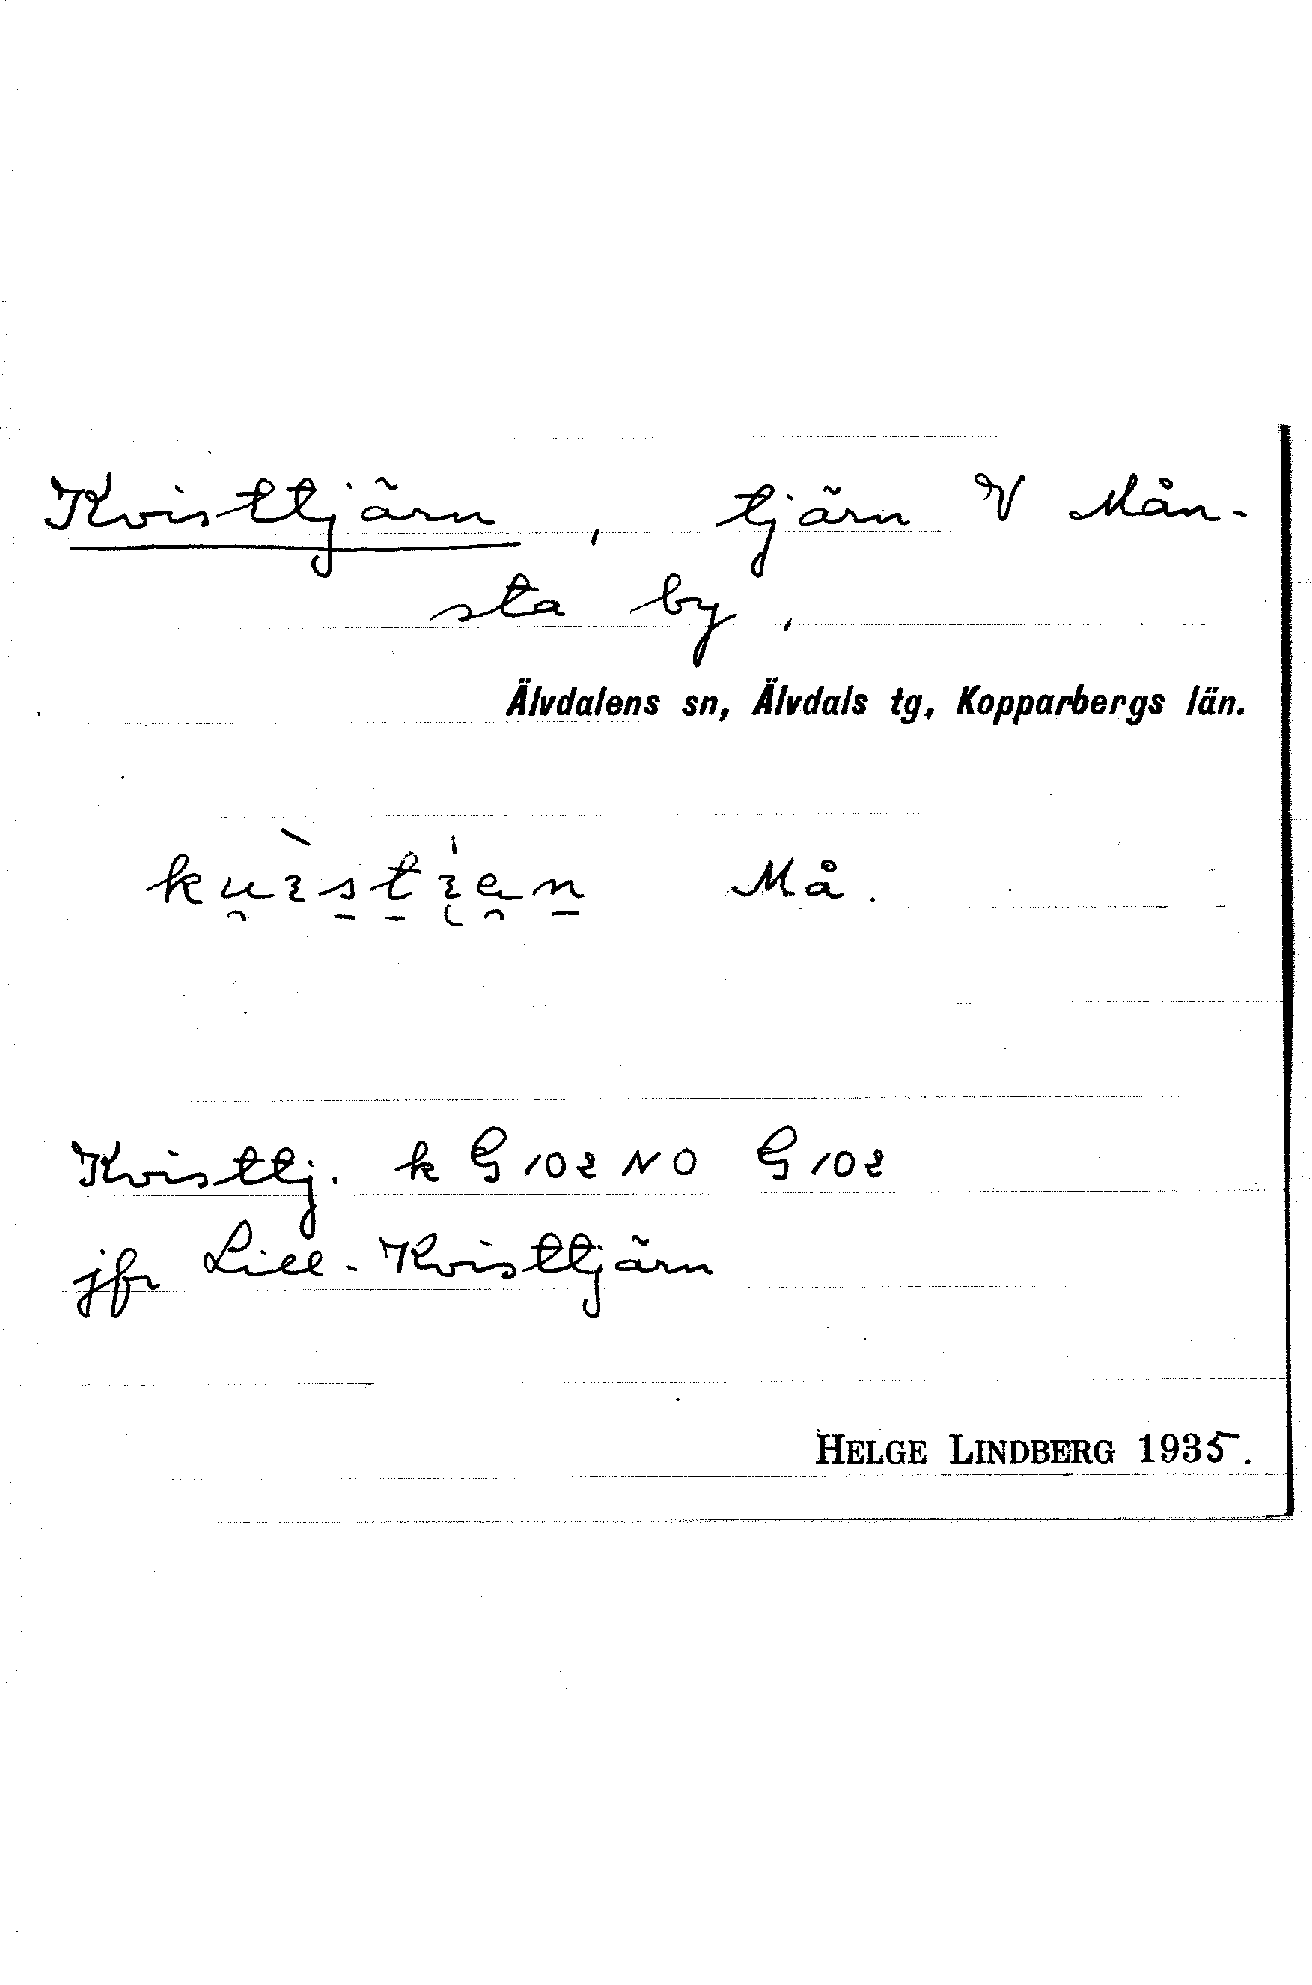 Kvisttjärn, tjärn V Mån-
sta by,
Älvdalens sn, Älvdals tg, Kopparbergs län.
Må.
Kvisttj. k G 102 NO G 102
jfr Lill-Kvisttjärn
HELGE LINDBERG 1935.